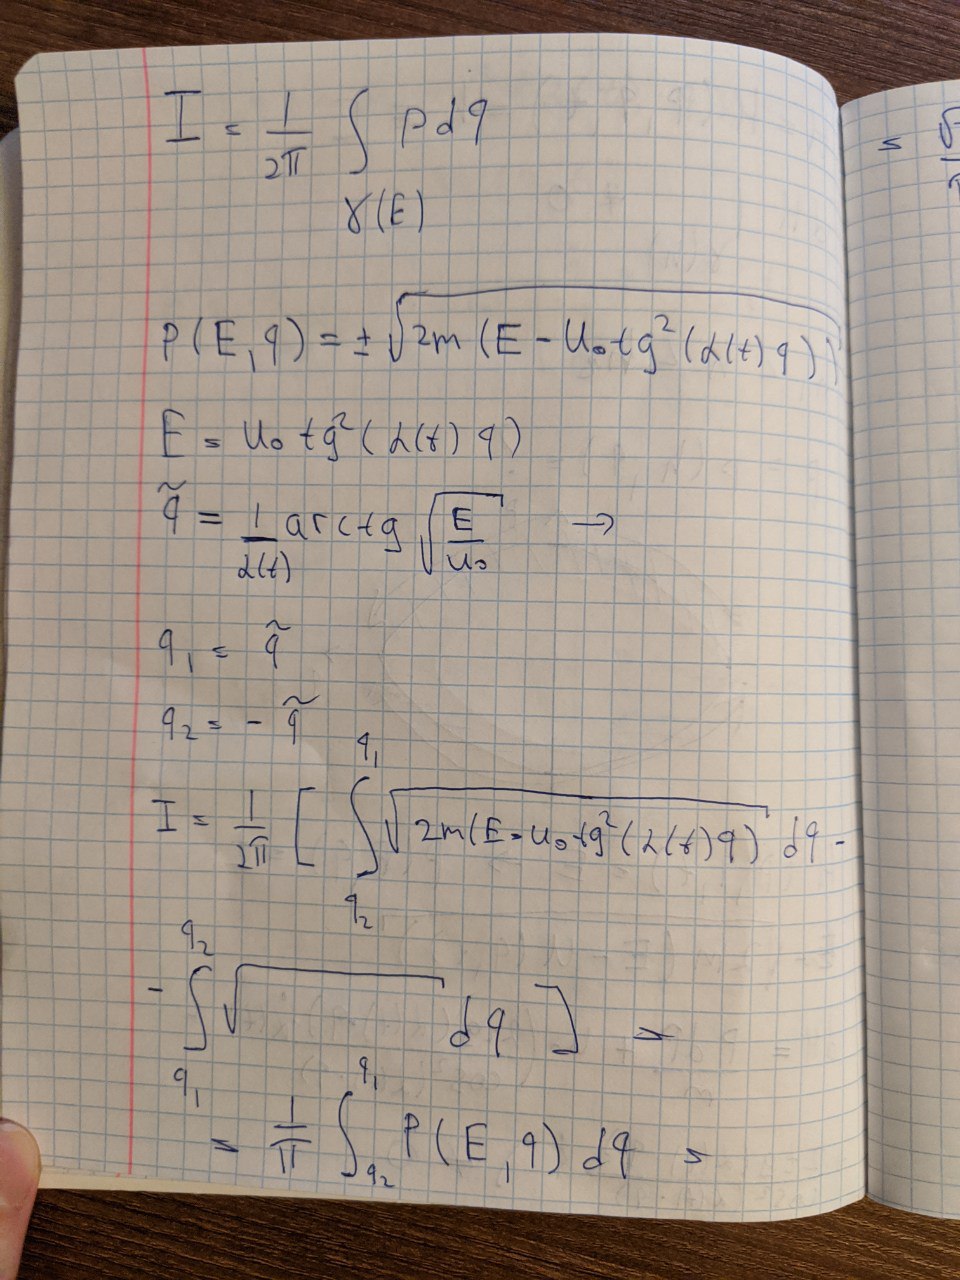 I = 1/2π ∫ p dq
γ(E)
p(E, q) = ± √(2m (E - U₀ tg² (α(t) q)))
E = U₀ tg² (α(t) q)
q̃ = 1/α(t) arctg √(E/U₀) →
q₁ = q̃
q₂ = - q̃
I = 1/2π [ ∫_{q₂}^{q₁} √(2m(E - U₀ tg² (α(t) q)) dq -
- ∫_{q₁}^{q₂} √ dq ] =
= 1/π ∫_{q₂}^{q₁} p(E, q) dq =
=